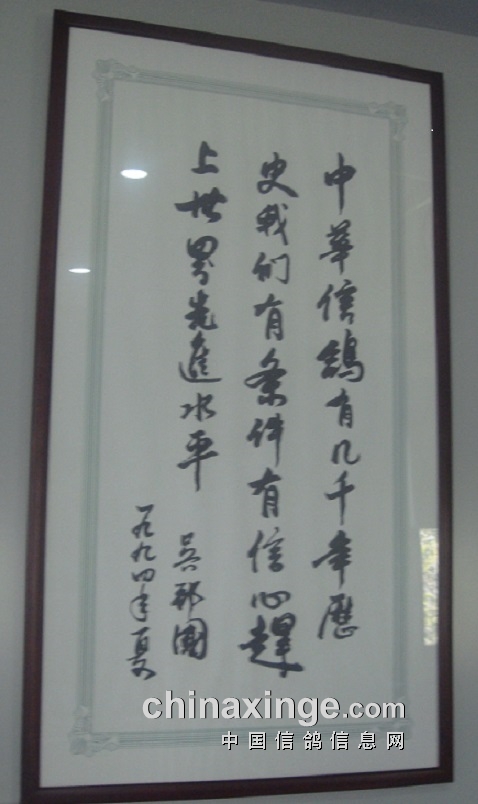 中華信鴿有几千年歷
史我们有条件有信心趕
上世界先進水平
吴邦國
一九九四年夏
chinaxinge.com
中国信鸽信息网